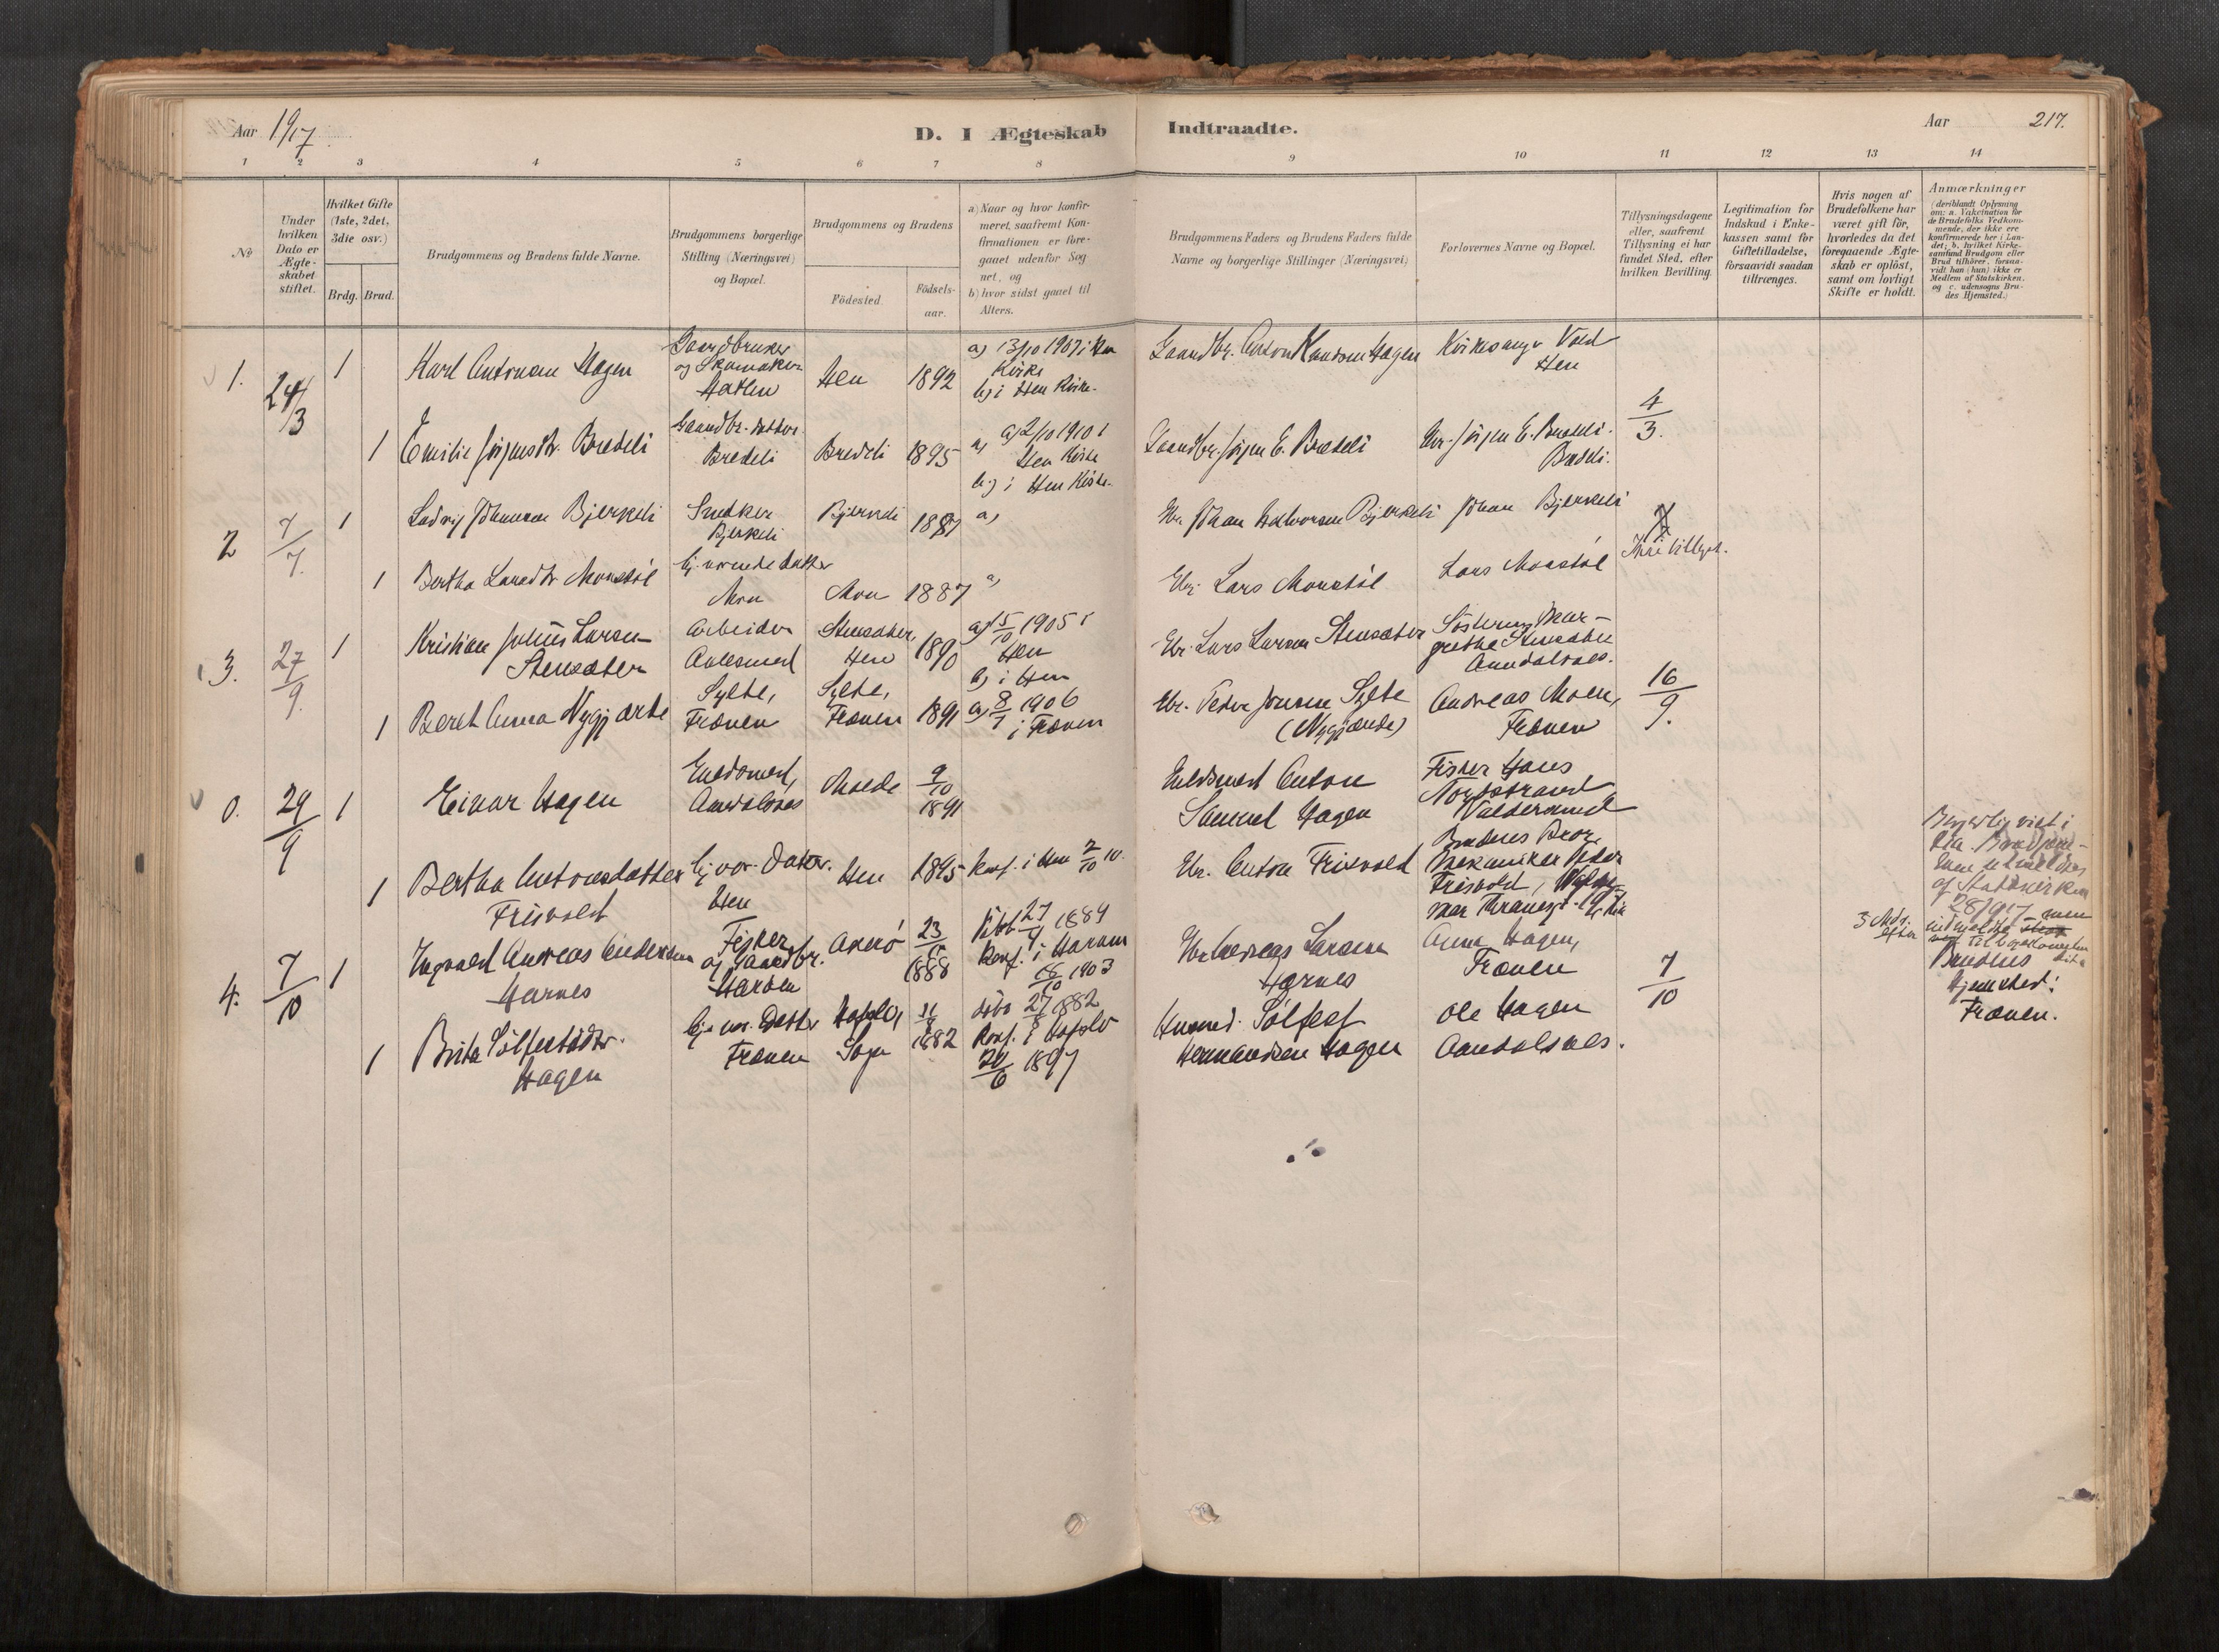 Aar 1917.
D. I Ægteskab
Indtraadte.
Aar
217.
1 2 3 4 5 6 7 8 9 10 11 12 13 14
No
Under
hvilken
Dato er
Ægte-
skabet
stiftet.
Hvilket Gifte
(1ste, 2det,
3die osv.)
Brdg. Brud.
Brudgommens og Brudens fulde Navne.
Brudgommens borgerlige
Stilling (Næringsvei)
og Bopæl.
Brudgommens og Brudens
Födested.
Födsels-
aar.
a) Naar og hvor konfir-
meret, saafremt Kon-
firmationen er fore-
gaaet udenfor Sog
net, og
b) hvor sidst gaaet til
Alters.
Brudgommens Faders og Brudens Faders fulde
Navne og borgerlige Stillinger (Næringsvei)
Forlovernes Navne og Bopæl.
Tillysningsdagene
eller, saafremt
Tillysning ei har
fundet Sted, efter
hvilken Bevilling.
Legitimation for
Indskud i Enke-
kassen samt for
Giftetilladelse,
forsaavidt saadan
tiltrænges.
Hvis nogen af
Brudefolkene har
været gift för,
hvorledes da det
foregaaende Ægte-
skab er oplöst,
samt om lovligt
Skifte er holdt.
Anmærkninger
(deriblandt Oplysning
om: a. Vakcination for
de Brudefolks Vedkom-
mende, der ikke ere
konfirmerede her i Lan-
det; b. hvilket Kirke-
samfund Brudgom eller
Brud tilhörer, forsaa-
vidt han (hun) ikke er
Medlem af Statskirken,
og c. udensogns Bru-
des Hjemsted.)
1. 24/3 1 Karl Antonsen Hagen
Gaardbruker
og Skomaker
Hatlen
Hen 1892
a) 13/10 1907 i Hen
Kirke
b) i Hen Kirke.
Gaardbr. Anton Knutsen Hagen
Kirkesanger Vold
Hen
4/3.
1 Emilie Jörgensdtr. Bredeli
Gaardbr. datter
Bredeli
Bredeli 1895
a) 2/10 1910 i
Hen Kirke
b) i Hen Kirke.
Gaardbr. Jörgen E. Bredeli
Gbr. Jörgen E. Bredeli.
Bredeli.
2 7/7. 1 Ludvig Johansen Bjerkeli
Snekker
Bjerkeli
Bjerkeli 1887 a)
Gbr. Johan Halvorsen Bjerkeli
Johan Bjerkeli
1 Bertha Larsdtr. Monstöl
hj. værende datter
Mon
Mon 1887 a)
Gbr. Lars Monstöl
Lars Monstöl
3. 27/9. 1 Kristian Julius Larsen
Stensæter
Arbeider
Stensæter,
Hen
1890
a) 15/10 1905 i
Hen
b) i Hen
Gbr. Lars Larsen Stensæter
Sösteren Mar-
grethe Stensæter
Aandalsnes.
16/9.
1 Beret Anna Nygjærde
Sylte,
Frænen
Sylte,
Frænen
1891
a) 8/7 1906
i Frænen
Gbr. Peder Jonsen Sylte
(Nygjærde)
Andreas Moen,
Frænen
0. 29/9 1 Einar Hagen
Guldsmed,
Aandalsnes
Molde
9/10
1891
Guldsmed Anton
Samuel Hagen
Fisker Hans
Nordstrand
Valderøund
1 Bertha Antonsdatter
Frisvold
hj. vær. Datter.
Hen
Hen 1895
konf. i Hen 2/10 10.
Gbr. Anton Frisvold
Brudens Bror,
Mekaniker Peder
Frisvold,
Borgerlig viet i
af Statskirken
28/9 17 men
3 Mdr.
efter
4. 7/10 1 Ingvald Andreas Andersen
Harnes
Fisker
og Gaardbr.
Haröen
Akerö
1888
konf. i Haram
1903
Gbr. Andreas Larsen
Harnes
Anna Hagen,
Frænen
7/10
Brudens
Hjemsted:
Frænen.
1 Brita Sölfestsdtr.
Hagen
hj. vær. Datter
Frænen
Hafslo,
Sogn
1882
döbt 27/8 1882
konf. i Hafslo
24/6 1897
Husmd. Sölfest
Hermandsen Hagen
Ole Hagen
Aandalsnes.